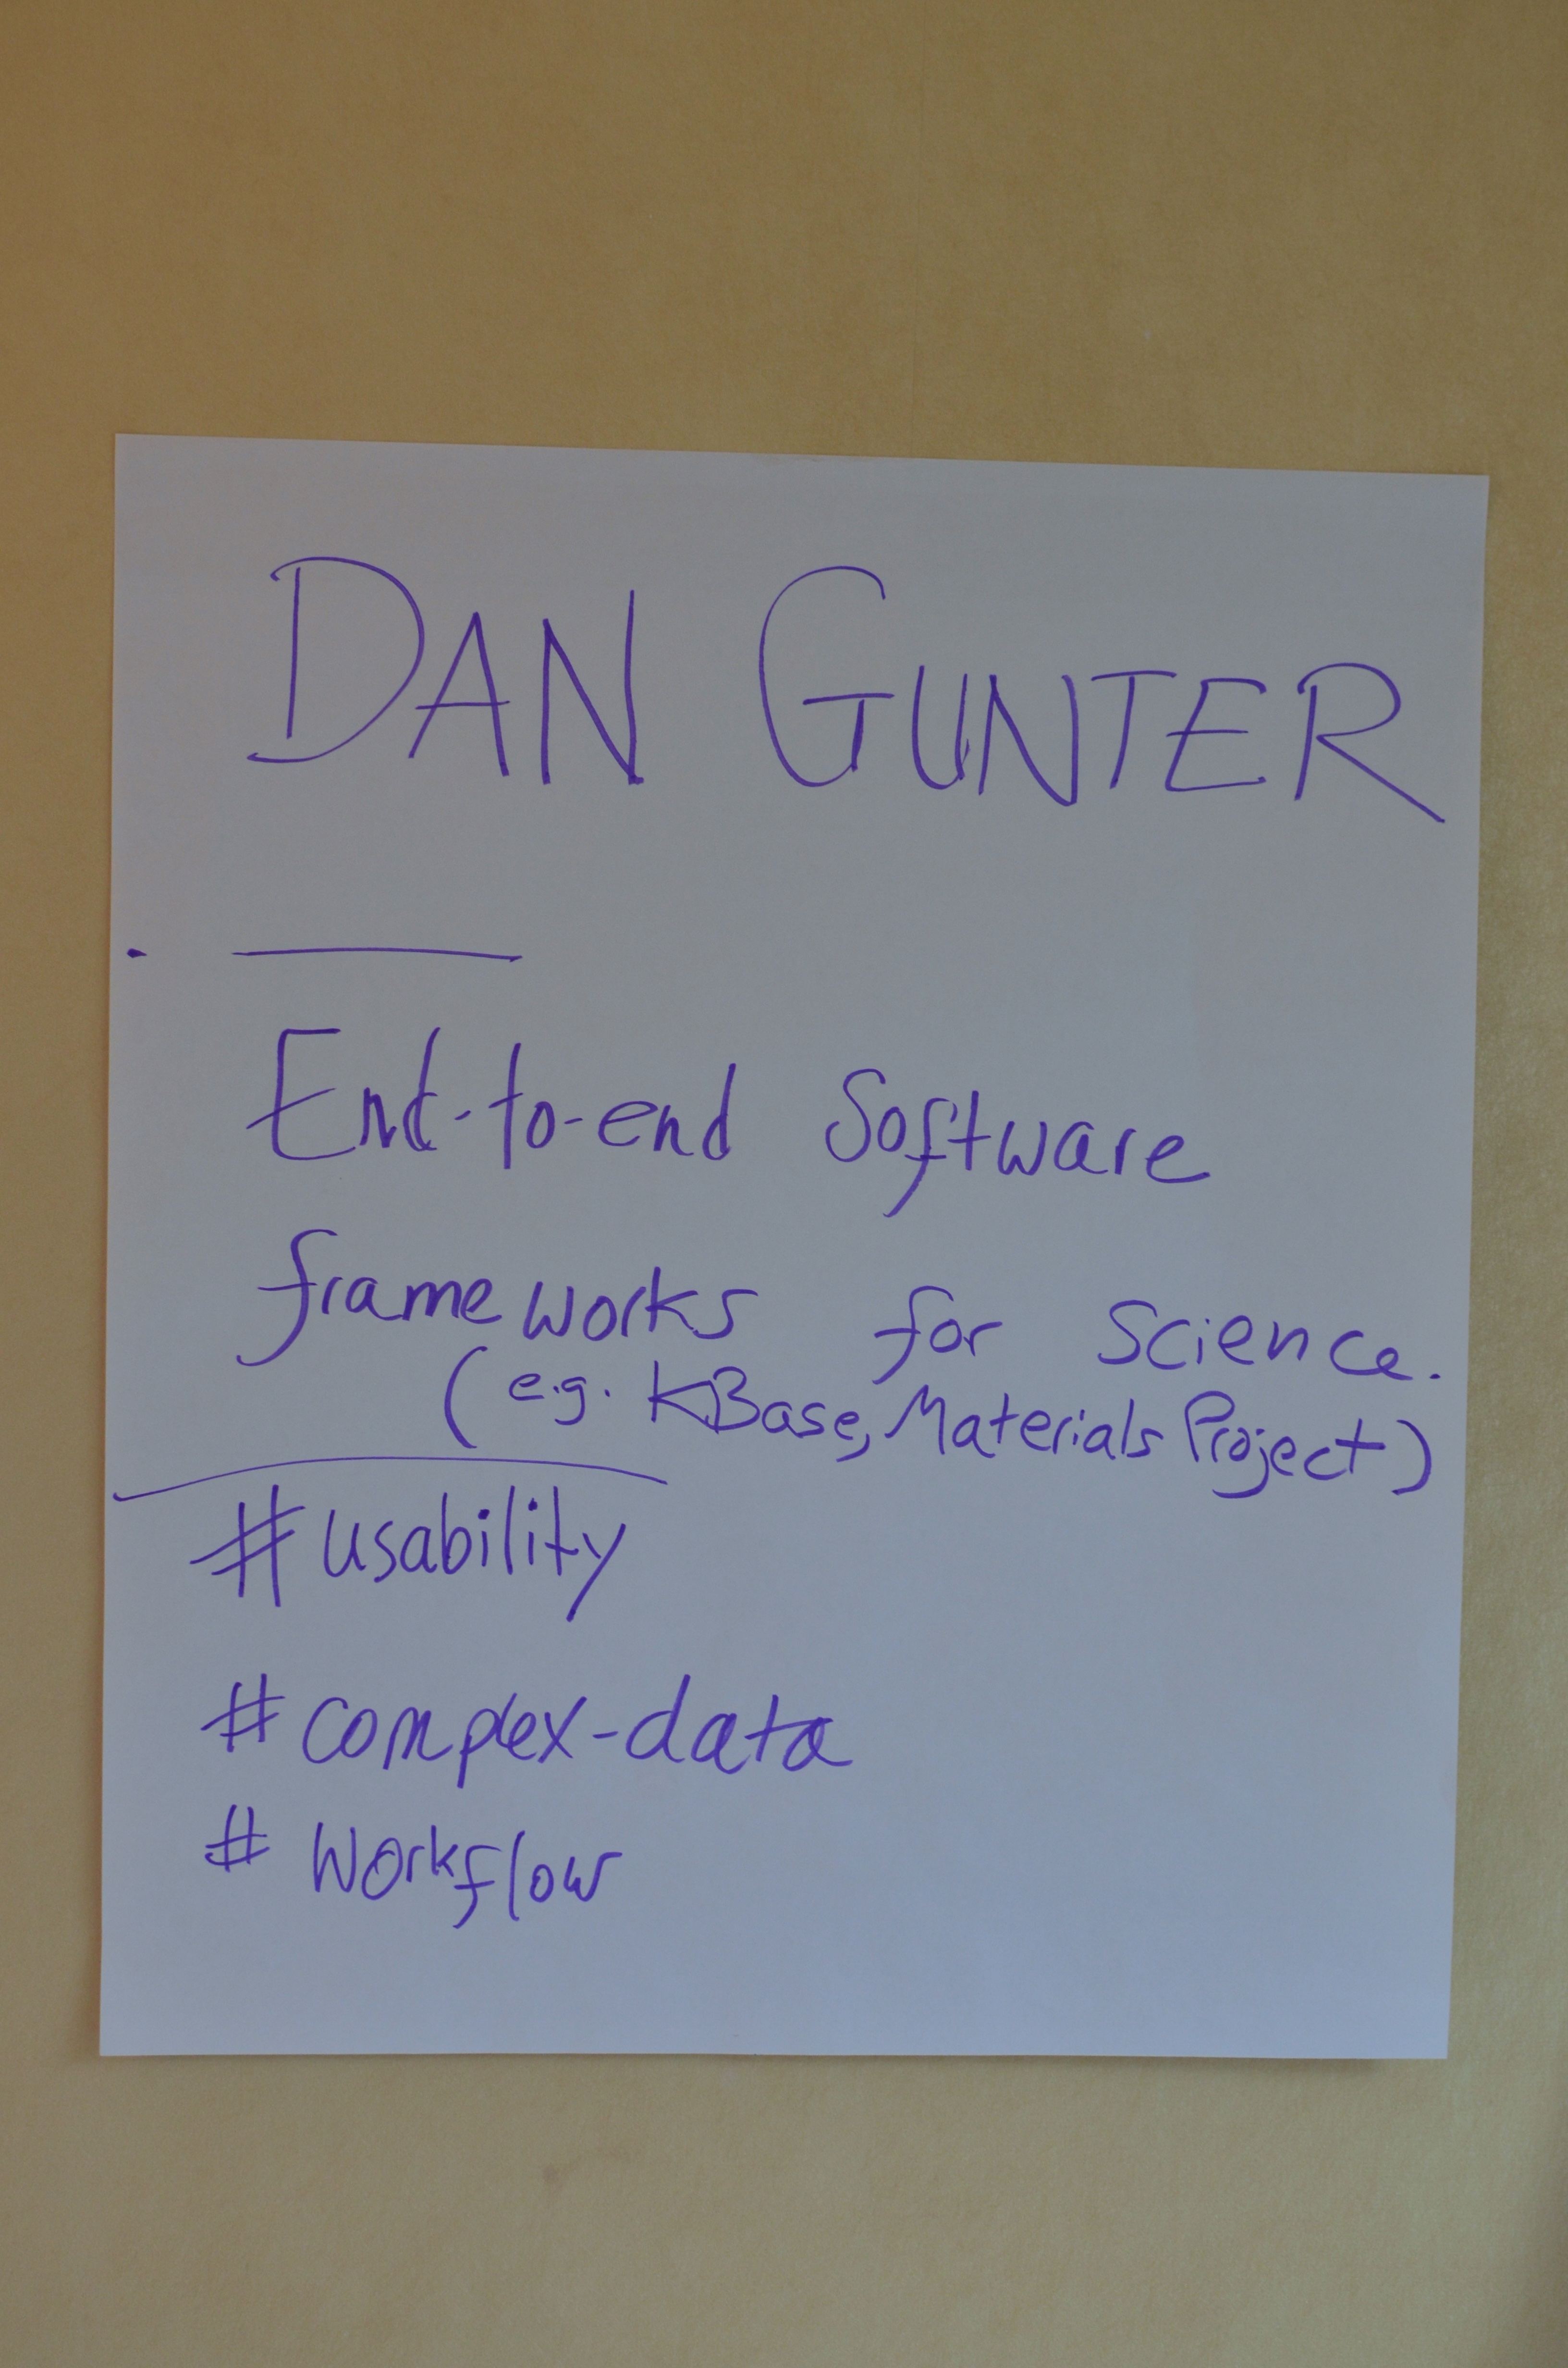 DAN GUNTER
End-to-end Software
frameworks for Science.
(e.g. KBase, Materials Project)
#usability
#complex-data
# Workflow